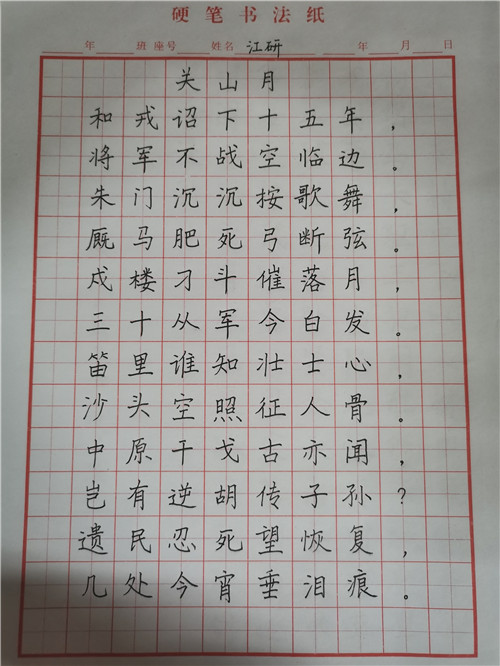 硬笔书法纸
年 班 座号 姓名 江研 年 月 日
关山月
和戎诏下十五年，
将军不战空临边。
朱门沉沉按歌舞，
厩马肥死弓断弦。
戍楼刁斗催落月，
三十从军今白发。
笛里谁知壮士心，
沙头空照征人骨。
中原干戈古亦闻，
岂有逆胡传子孙？
遗民忍死望恢复，
几处今宵垂泪痕。